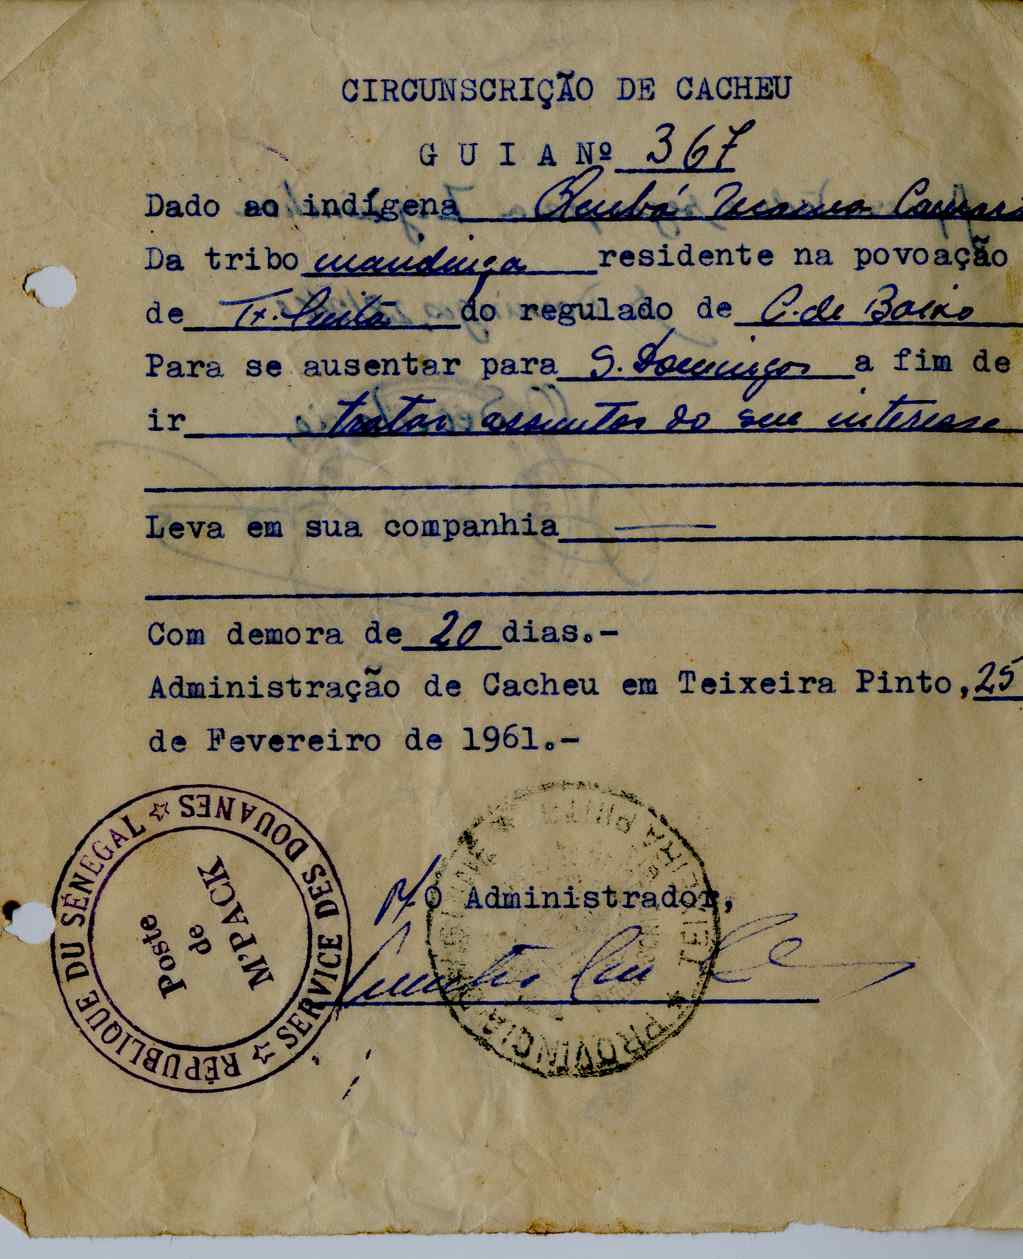 CIRCUNSCRIÇÃO DE CACHEU
G U I A Nº 367
Dado ao indígena Camara
Da tribo mandinga residente na povoação
de Tx. do regulado de C. de Baixo
Para se ausentar para S. Domingos a fim de
ir tratar assuntos do seu interesse
Leva em sua companhia
Com demora de 20 dias.-
Administração de Cacheu em Teixeira Pinto, 25
de Fevereiro de 1961.-
O Administrador,
RÉPUBLIQUE DU SÉNÉGAL ☆ SERVICE DES DOUANES ☆
Poste
de
M'PACK
PROVINCIA TEIXEIRA PINTO